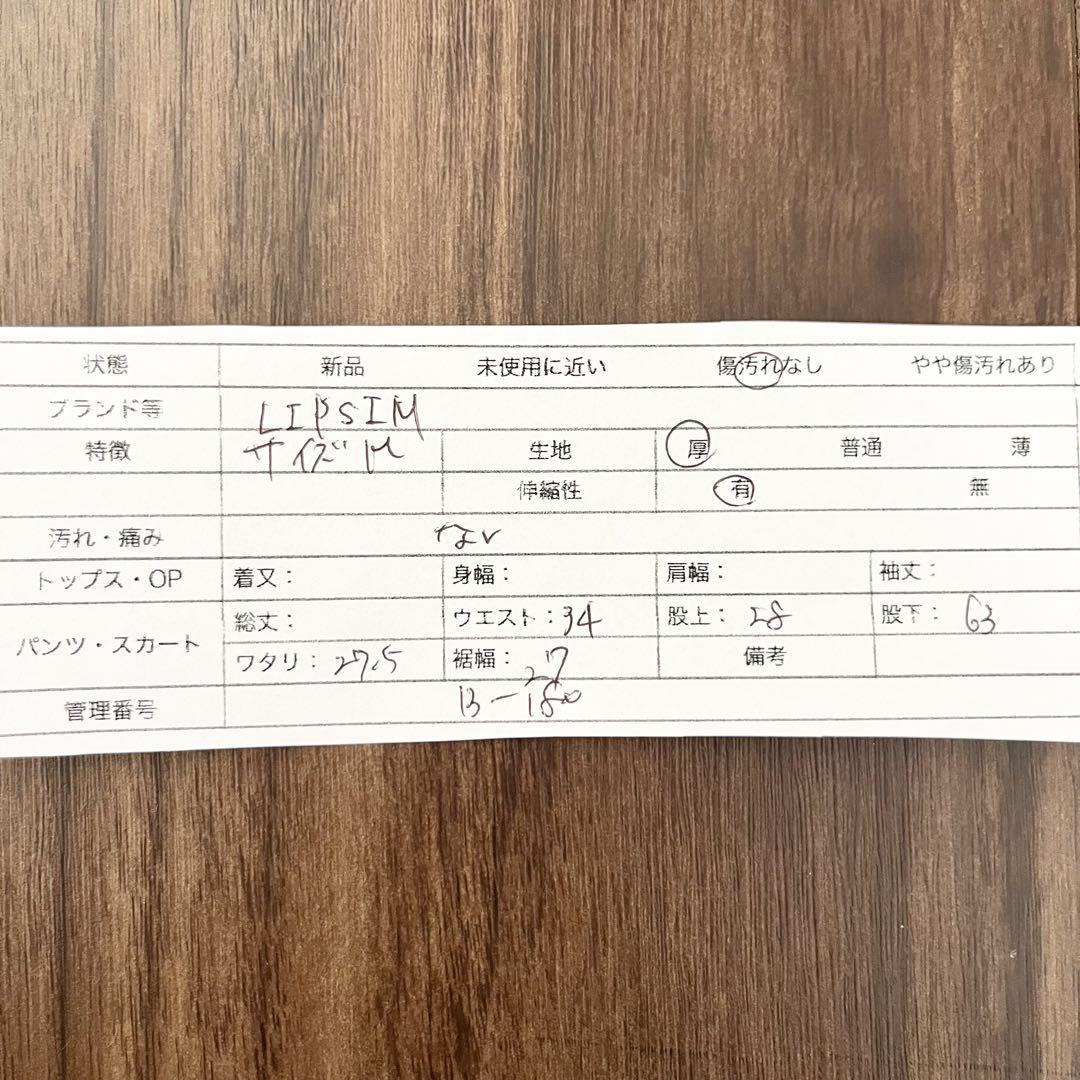 状態 新品 未使用に近い 傷汚れなし やや傷汚れあり
ブランド等 LIPSIM
特徴 サイズM 生地 厚 普通 薄
伸縮性 有 無
汚れ・痛み ない
トップス・OP 着又: 身幅: 肩幅: 袖丈:
パンツ・スカート 総丈: ウエスト:34 股上:28 股下:63
ワタリ:27.5 裾幅:27 備考
管理番号